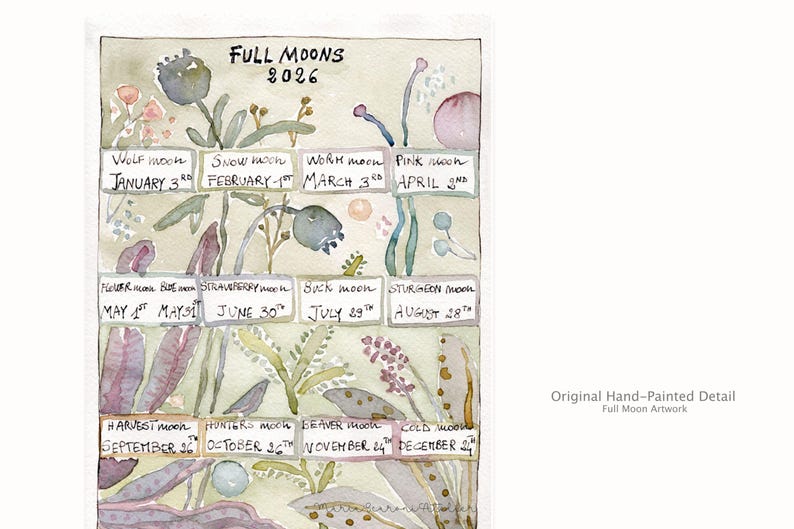 FULL MOONS
2026
WOLF moon
JANUARY 3RD
SNOW moon
FEBRUARY 1ST
WORM moon
MARCH 3RD
PINK moon
APRIL 2ND
FLOWER moon BLUE moon
MAY 1ST MAY 31ST
STRAWBERRY moon
JUNE 30TH
BUCK moon
JULY 29TH
STURGEON moon
AUGUST 28TH
HARVEST moon
SEPTEMBER 26TH
HUNTERS moon
OCTOBER 26TH
BEAVER moon
NOVEMBER 24TH
COLD moon
DECEMBER 24TH
Original Hand-Painted Detail
Full Moon Artwork